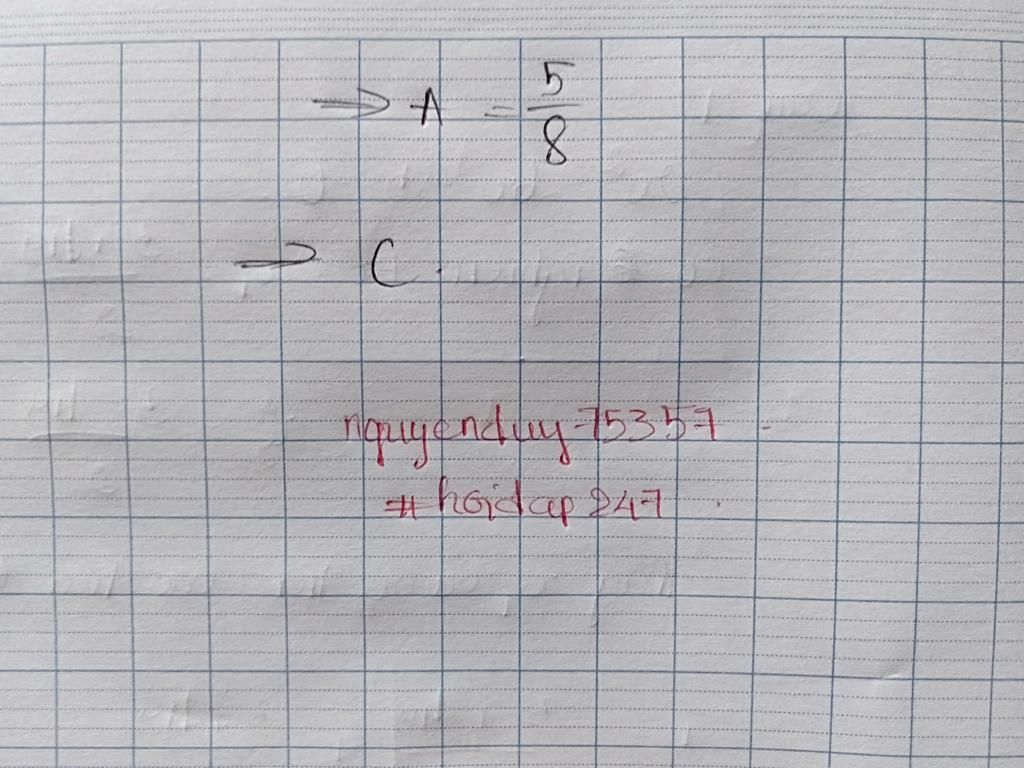 ⇒ A = 5/8
→ C.
nguyenduy75357
#hoidap247